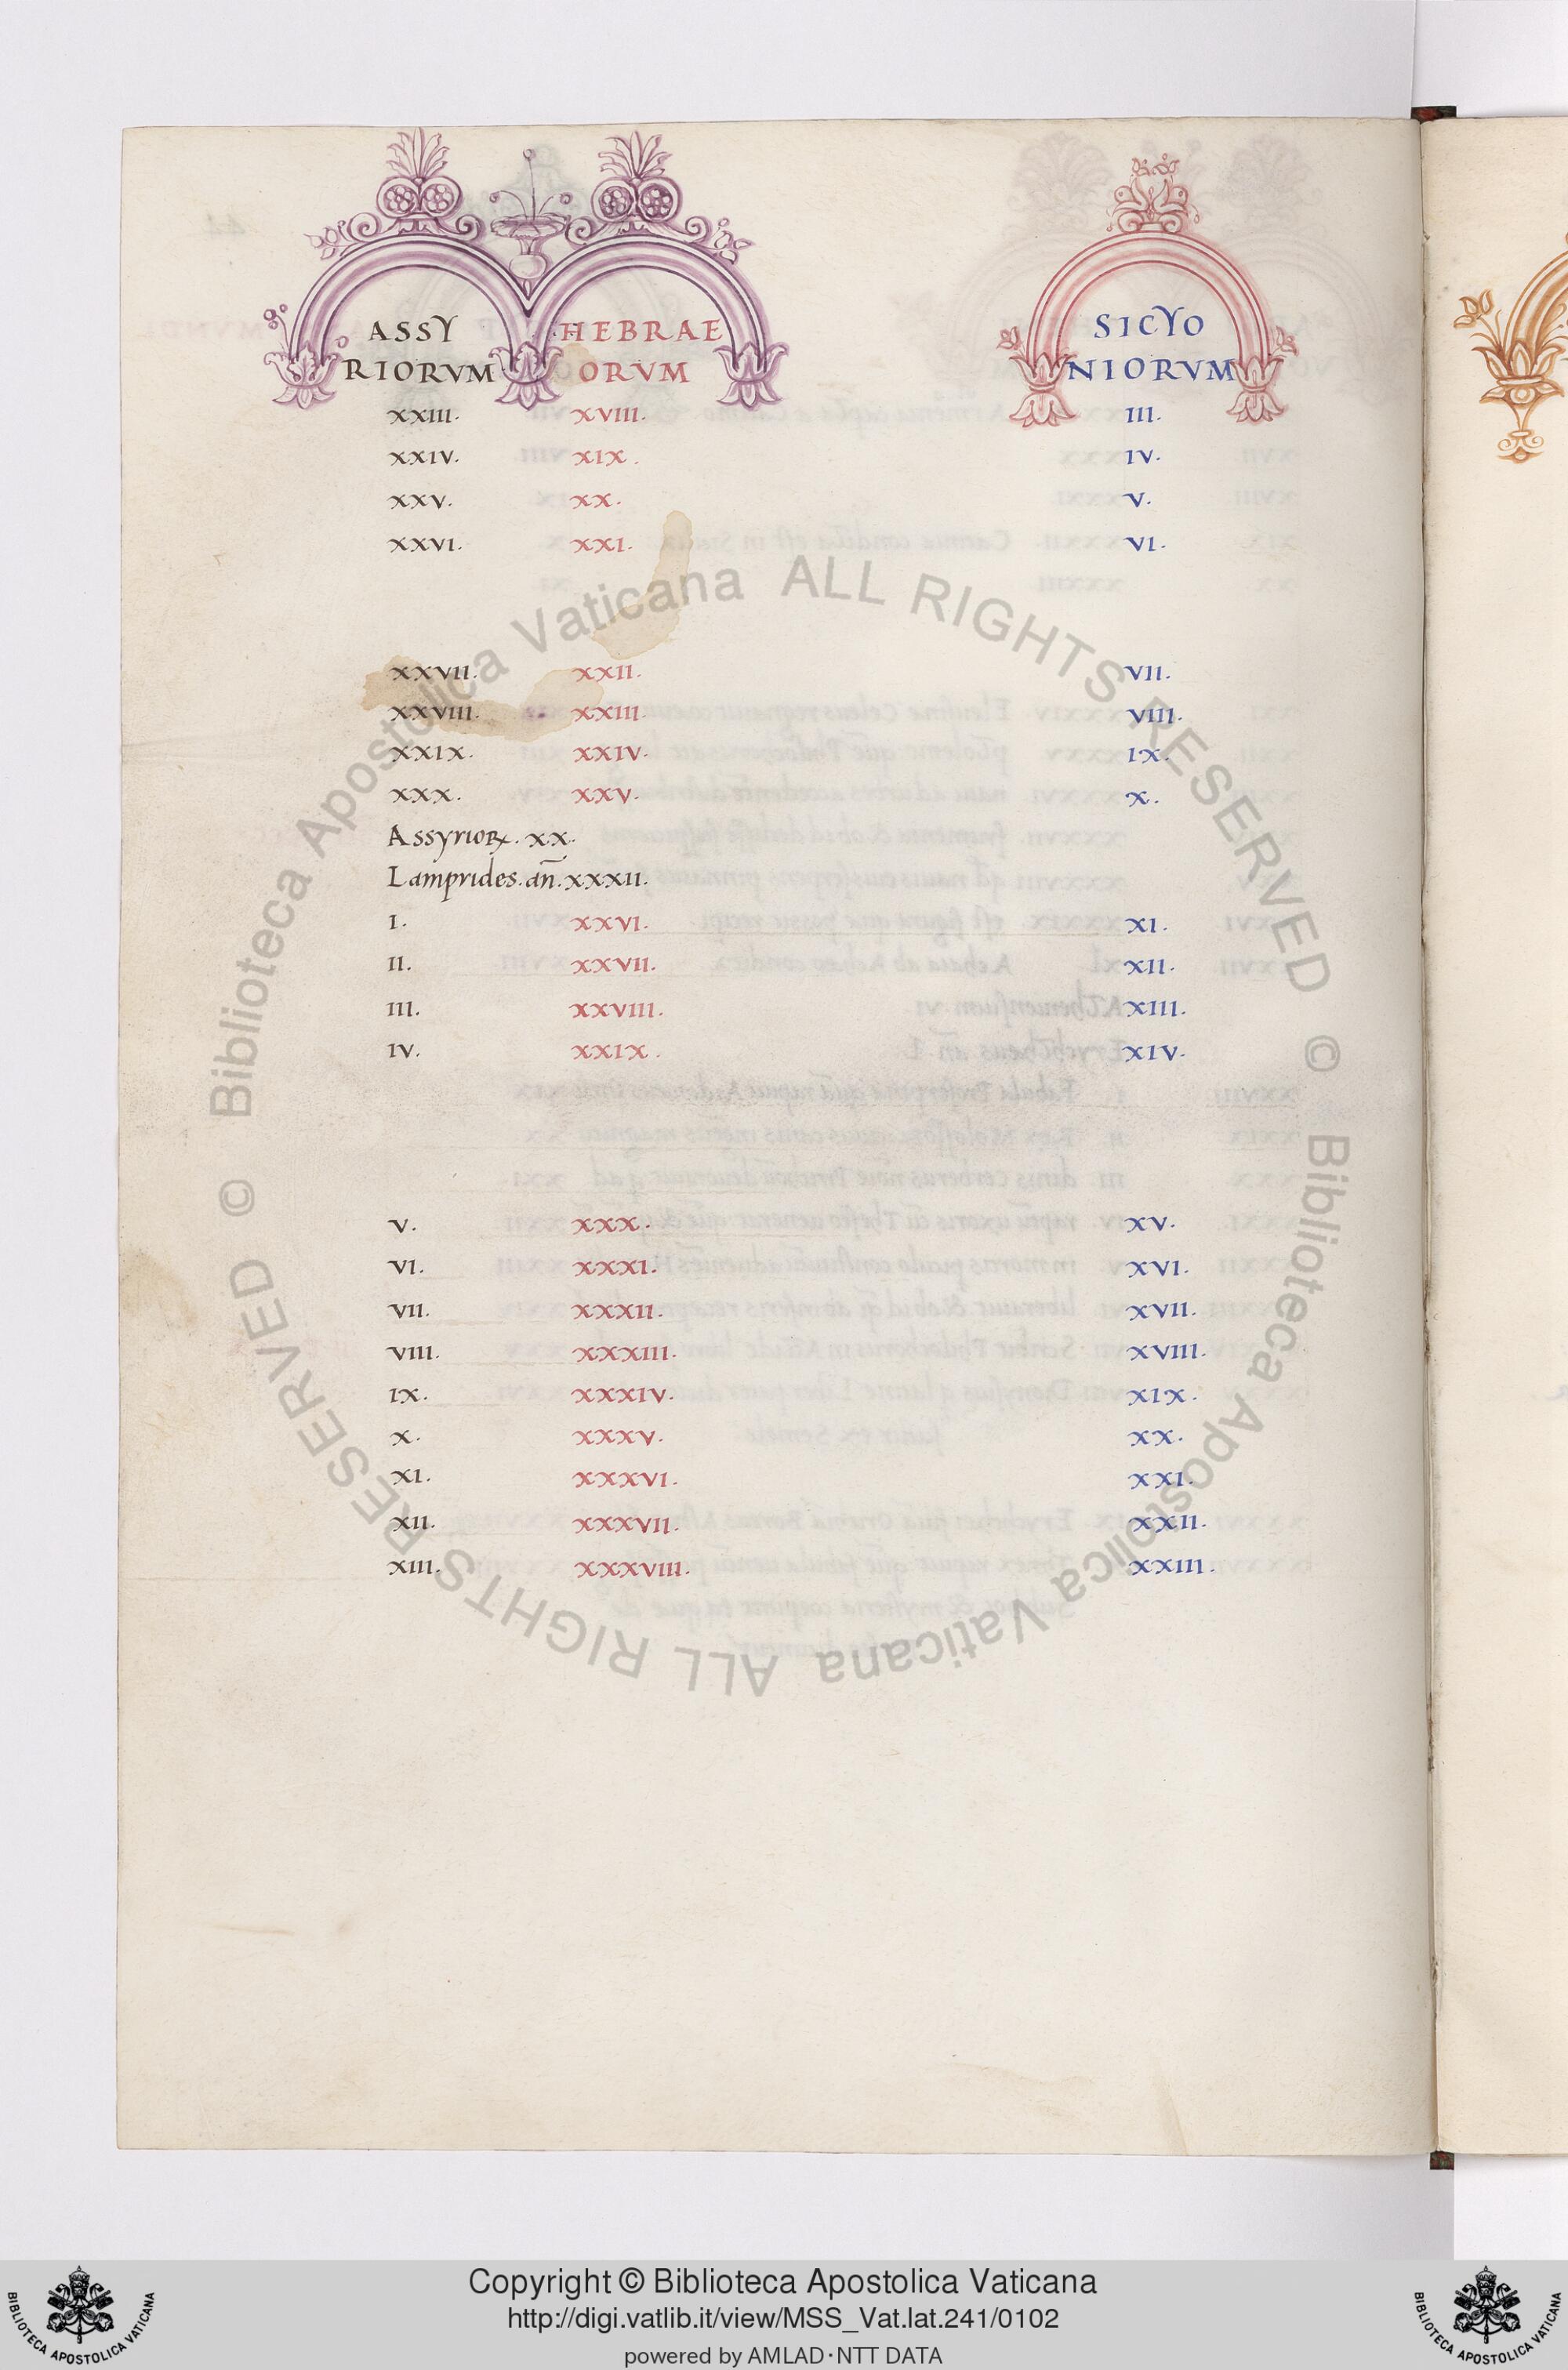 ASSY HEBRAE SICYO
RIORVM ORVM NIORVM
XXIII. XVIII. III.
XXIV. XIX. IV.
XXV. XX. V.
XXVI. XXI. VI.
XXVII. XXII. VII.
XXVIII. XXIII. VIII.
XXIX. XXIV. IX.
XXX. XXV. X.
Assyrioꝝ. XX.
Lamprides. an̄. XXXII.
I. XXVI. XI.
II. XXVII. XII.
III. XXVIII. XIII.
IV. XXIX. XIV.
V. XXX. XV.
VI. XXXI. XVI.
VII. XXXII. XVII.
VIII. XXXIII. XVIII.
IX. XXXIV. XIX.
X. XXXV. XX.
XI. XXXVI. XXI.
XII. XXXVII. XXII.
XIII. XXXVIII. XXIII.
© Biblioteca Apostolica Vaticana ALL RIGHTS RESERVED
© Biblioteca Apostolica Vaticana ALL RIGHTS RESERVED
Copyright © Biblioteca Apostolica Vaticana
http://digi.vatlib.it/view/MSS_Vat.lat.241/0102
powered by AMLAD·NTT DATA
BIBLIOTECA APOSTOLICA VATICANA
BIBLIOTECA APOSTOLICA VATICANA